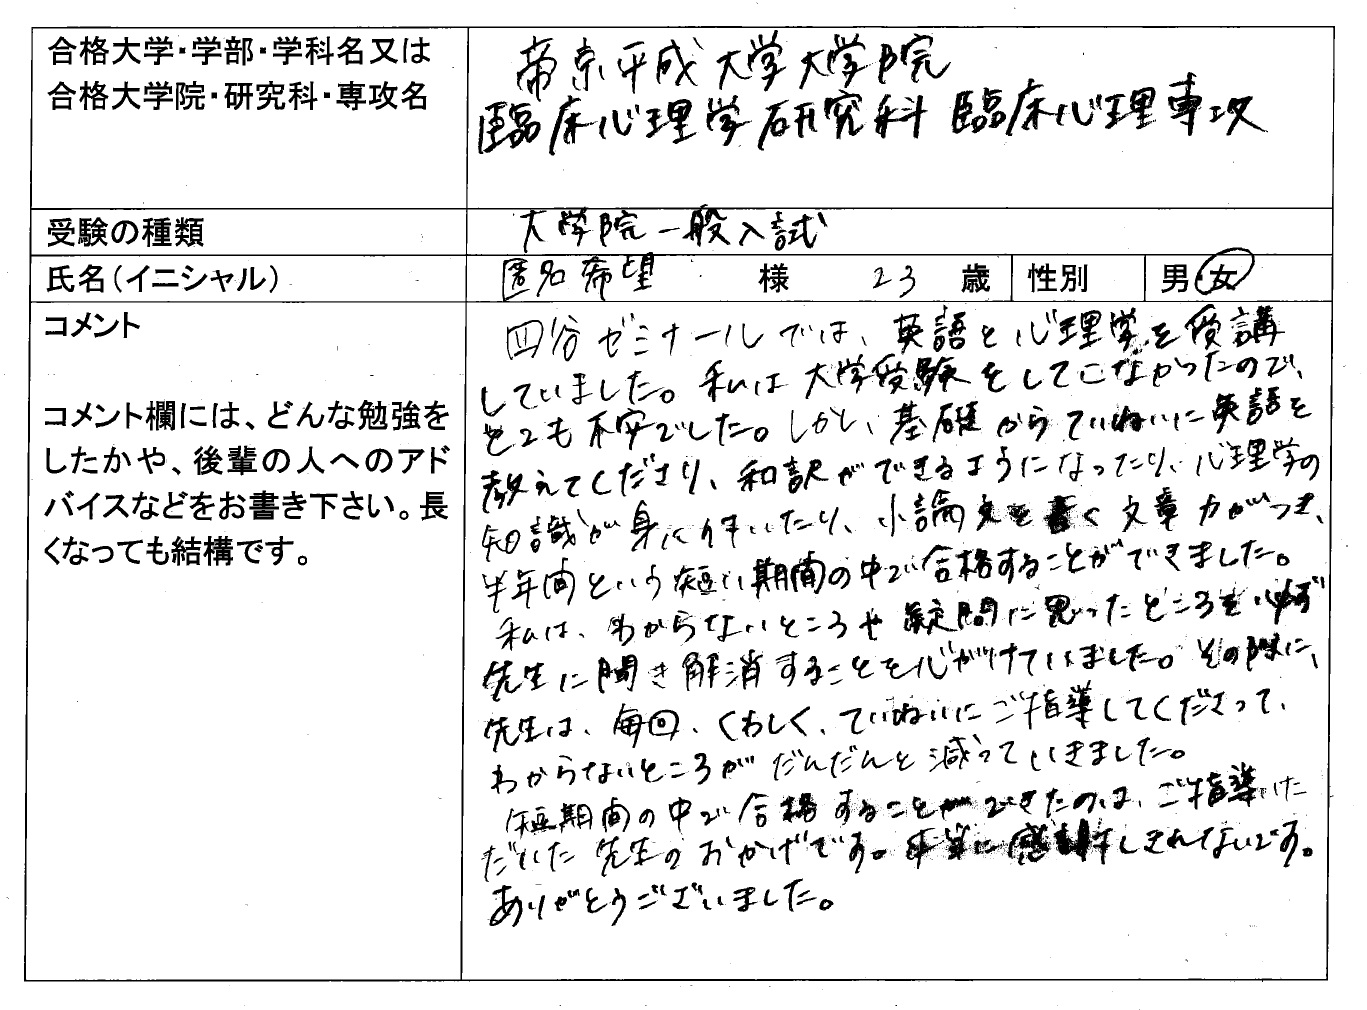 合格大学・学部・学科名又は
合格大学院・研究科・専攻名
帝京平成大学大学院
臨床心理学研究科 臨床心理専攻
受験の種類
大学院一般入試
氏名(イニシャル)
匿名希望 様 23 歳 性別 男・女
コメント
コメント欄には、どんな勉強を
したかや、後輩の人へのアド
バイスなどをお書き下さい。長
くなっても結構です。
四谷ゼミナールでは、英語と心理学を受講
していました。私は大学受験をしてこなかったので、
とても不安でした。しかし、基礎からていねいに英語を
教えてくださり、和訳ができるようになったり、心理学の
知識が身に付いたり、小論文を書く文章力がつき、
半年間という短い期間の中で合格することができました。
私は、わからないところや疑問に思ったところを必ず
先生に聞き解消することを心がけていました。その際に、
先生は、毎回、くわしく、ていねいにご指導してくださって、
わからないところがだんだんと減っていきました。
短期間の中で合格することができたのは、ご指導いた
だいた先生のおかげです。本当に感謝しきれないです。
ありがとうございました。